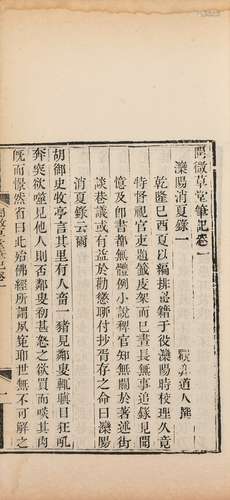 閱微草堂筆記卷一
灤陽消夏錄一
觀弈道人撰
乾隆己酉夏以編排秘籍于役灤陽時校理久竟
特督視官吏題籤庋架而已晝長無事追錄見聞
憶及即書都無體例小說稗官知無關於著述街
談巷議或有益於勸懲聊付抄胥存之命曰灤陽
消夏錄云爾
胡御史牧亭言其里有人畜一豬見鄰叟輒瞋目狂吼
奔突欲噬見他人則否鄰叟初甚怒之欲買而啖其肉
既而憬然省曰此殆佛經所謂夙冤耶世無不可解之